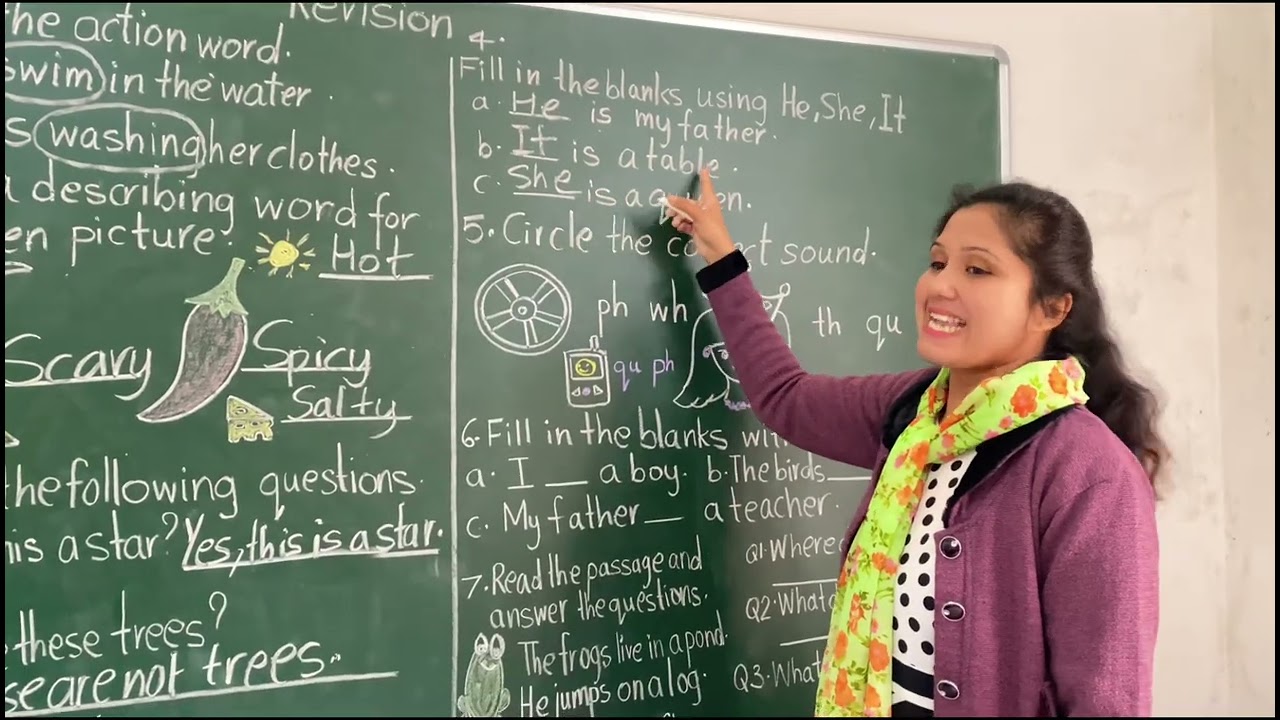 Revision
the action word.
swim in the water.
washing her clothes.
describing word for
picture.
Hot
Scary
Spicy
Salty
the following questions.
a star? Yes, this is a star.
these trees?
are not trees.
4.
Fill in the blanks using He, She, It
a. He is my father.
b. It is a table.
c. She is a
5. Circle the sound.
ph wh
th qu
qu ph
6. Fill in the blanks
a. I __ a boy. b. The birds __
c. My father __ a teacher.
7. Read the passage and
answer the questions.
The frogs live in a pond.
He jumps on a log.
Q1. Where
Q2. What
Q3. What